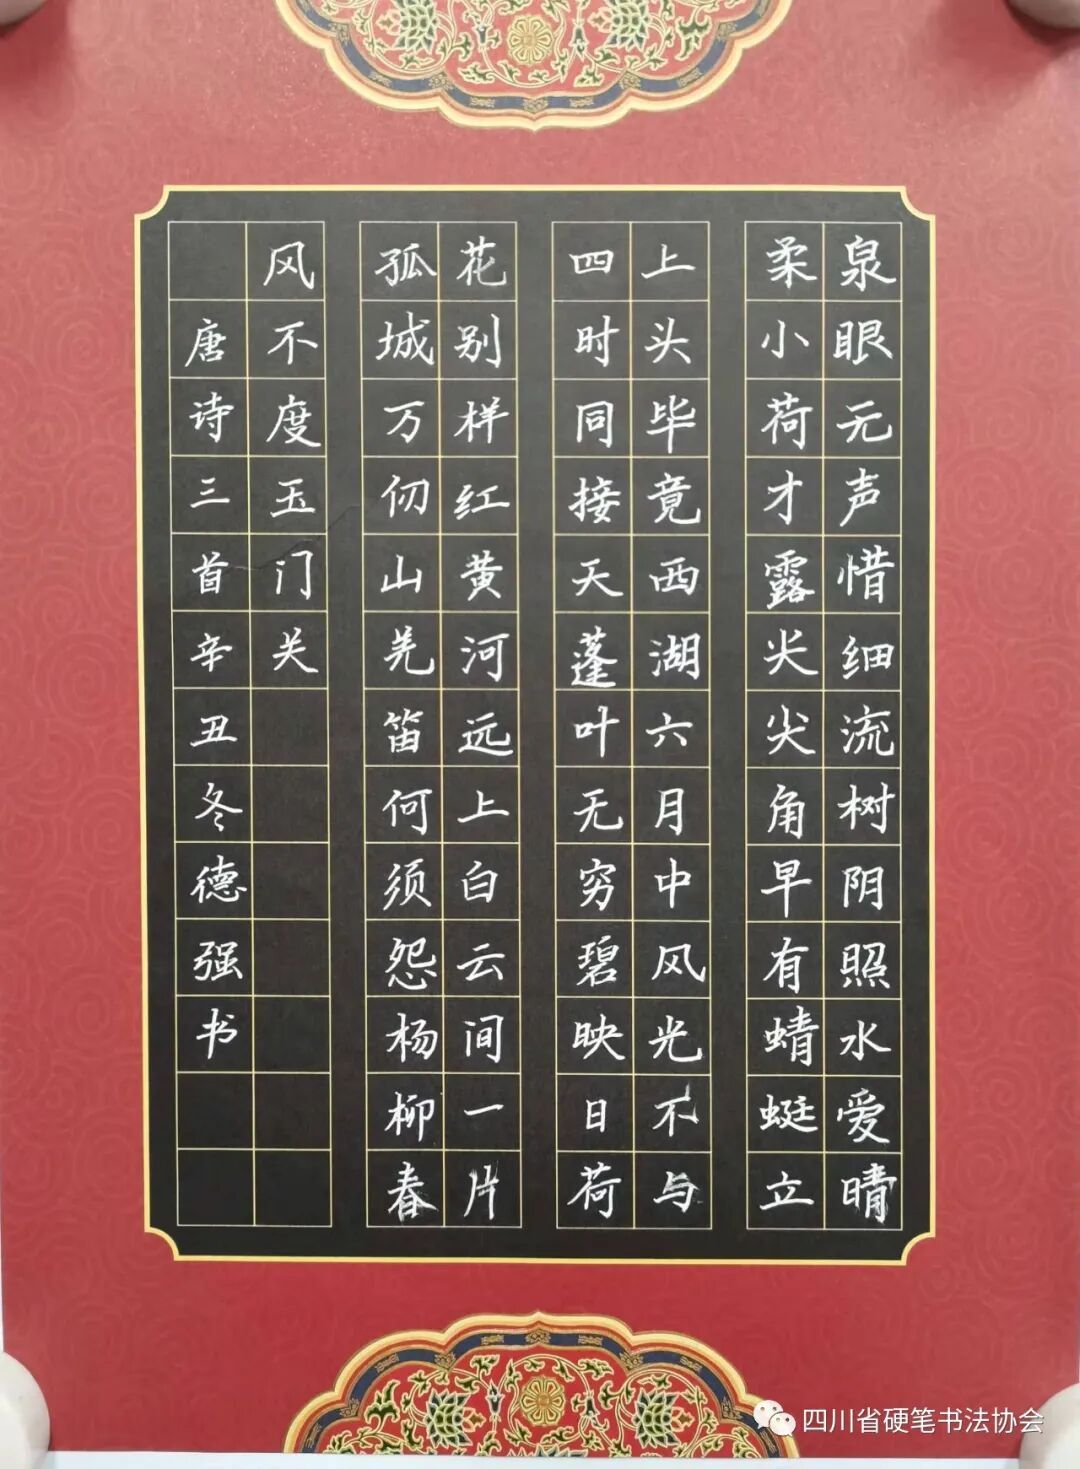 泉眼元声惜细流树阴照水爱晴
柔小荷才露尖尖角早有蜻蜓立
上头毕竟西湖六月中风光不与
四时同接天莲叶无穷碧映日荷
花别样红黄河远上白云间一片
孤城万仞山羌笛何须怨杨柳春
风不度玉门关
唐诗三首辛丑冬德强书
四川省硬笔书法协会